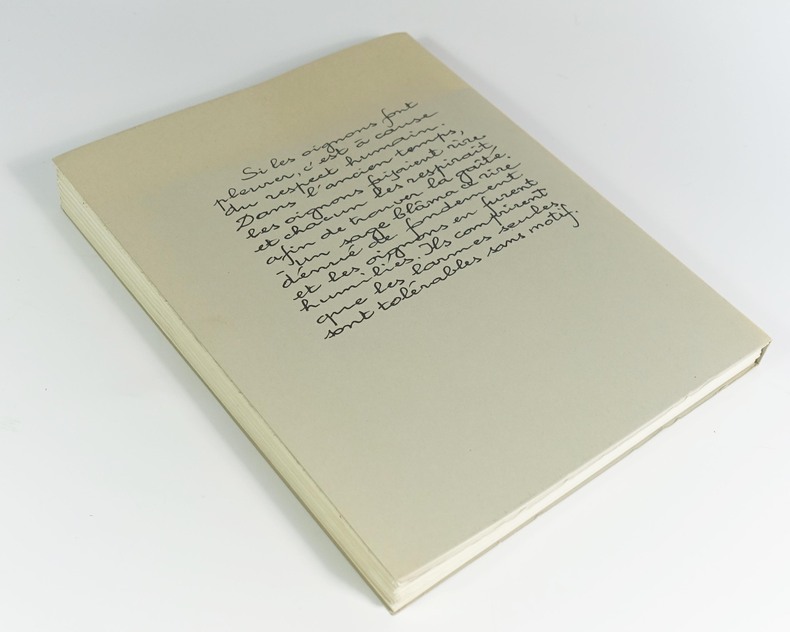 Si les oignons font
pleurer, c'est à cause
du respect humain.
Dans l'ancien temps,
les oignons faisaient rire
et chacun les respirait
afin de trouver la gaîté.
Un sage blâma ce rire
dénué de fondement
et les oignons en furent
humiliés. Ils comprirent
que les larmes seules
sont tolérables sans motif.